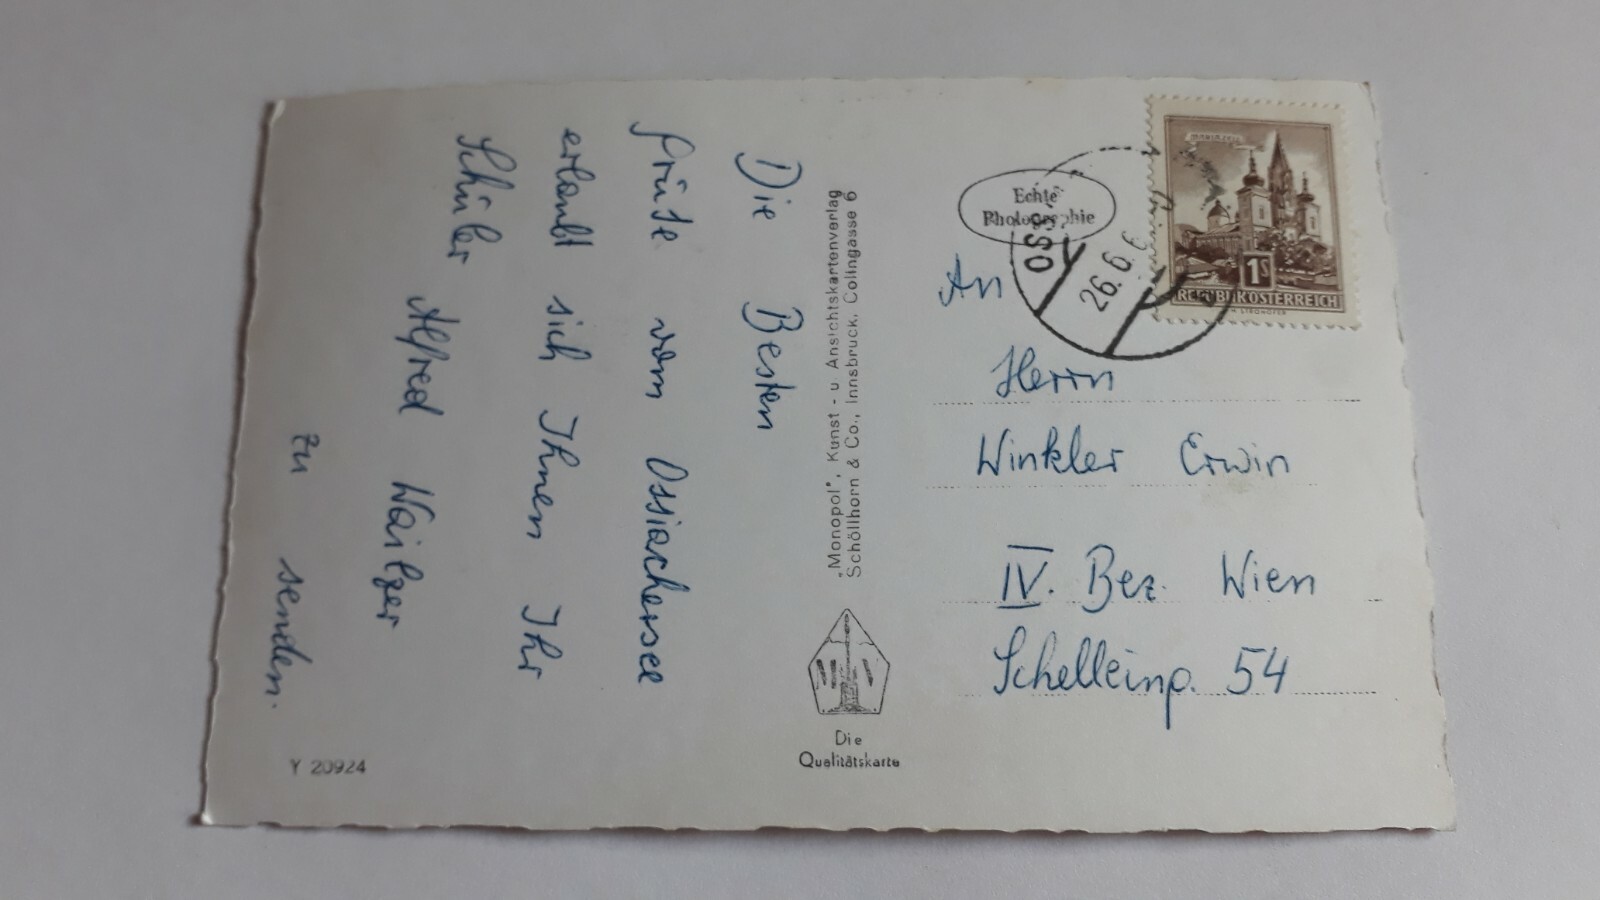 Die Besten
Grüße vom Ossiachersee
erlaubt sich Ihnen Ihr
Schüler Alfred
zu senden.
Y 20924
„Monopol", Kunst- u. Ansichtskartenverlag
Schöllhorn & Co., Innsbruck, Colingasse 6
Die
Qualitätskarte
Echte
Photographie
26.6.6
MARIAZELL
1S
REPUBLIK ÖSTERREICH
An
Herrn
Winkler Erwin
IV. Bez. Wien
Schelleing. 54